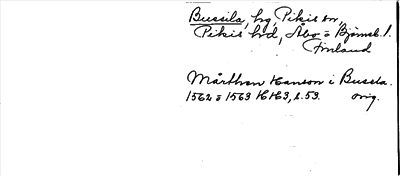 Bussila, by, Pikis sn,
Pikis hd, Åbo o Björneb. l.
Finland
Mårthen Hanson i Bussla.
1562 o 1563 KH3, s. 59. orig.